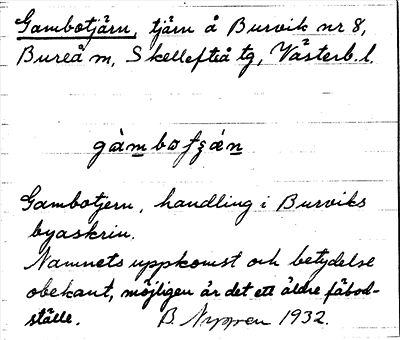 Gambotjärn, tjärn å Burvik nr 8,
Bureå sn, Skellefteå tg, Västerb. l.
Gambotjern, handling i Burviks
byaskrin.
Namnets uppkomst och betydelse
obekant, möjligen är det ett äldre fäbod-
ställe. B. Nyppen 1932.